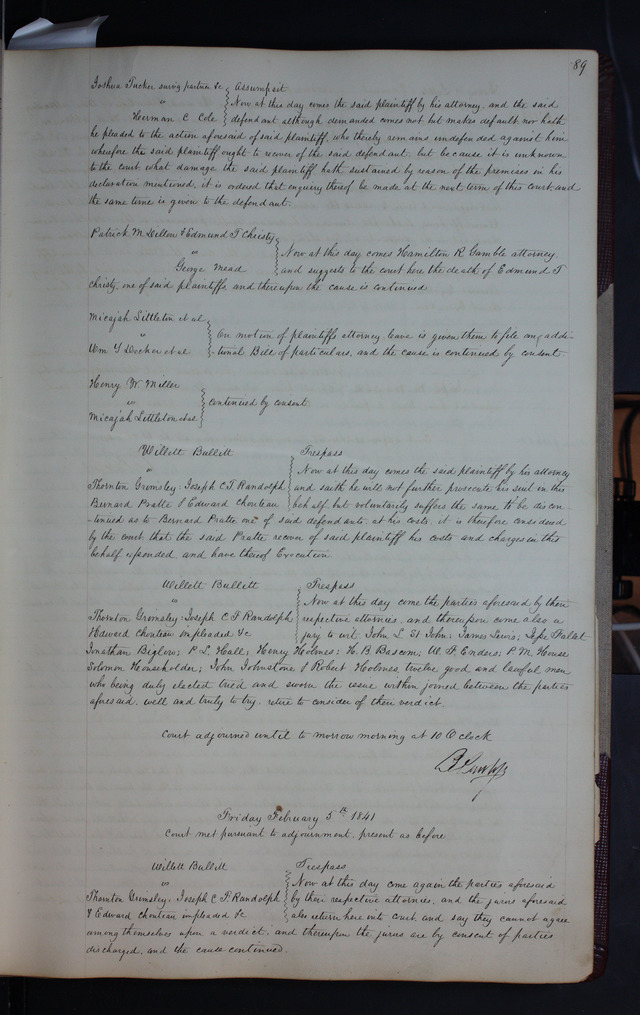 89
Joshua Tucker survig partner &c Assumpsit
vs Now at this day comes the said plaintiff by his attorney, and the said
Herman C Cole defendant although demanded comes not but makes default nor hath
he pleaded to the action aforesaid of said plaintiff, who thereby remains undefended against him
wherefore the said plaintiff ought to recover of the said defendant, but because it is unknown
to the court what damage the said plaintiff hath sustained by reason of the premises in his
declaration mentioned, it is ordered that enquiry thereof be made at the next term of this court, and
the same time is given to the defendant.
Patrick M. Dillon & Edmund T Christy
vs Now at this day comes Hamilton R Gamble attorney
George Mead and suggests to the court here the death of Edmund T
christy, one of said plaintiffs, and thereupon the cause is continued
Micajah Littleton et al
vs On motion of plaintiffs attorney leave is given them to file an addi-
Wm Y et al -tional Bill of particulars, and the cause is continued by consent.
Henry W Miller
vs continued by consent
Micajah Littleton et al
Willett Bullett Trespass
vs Now at this day comes the said plaintiff by his attorney
Thornton Grimsley, Joseph C. T. Randolph and saith he will not further prosecute his suit in this
Bernard Pratte & Edward Chouteau behalf, but voluntarily suffers the same to be discon
-tinued as to Bernard Pratte one of said defendants, at his costs, it is therefore considered
by the court that the said Pratte recover of said plaintiff his costs and charges in this
behalf expended, and have thereof Execution
Willett Bullett Trespass
vs Now at this day come the parties aforesaid by their
Thornton Grimsley, Joseph C F Randolph respective attornies, and thereupon come also a
Edward Chouteau impleaded &c jury to wit, John L St John; James Lewis;
Jonathan Biglow; P. L. Hall; Henry Holmes; H. B. Bascom; W. F. Enders; P. M. House
Solomon Householder; John Johnstone & Robert Holmes, twelve good and lawful men
who being duly elected tried and sworn the issue within joined between the parties
aforesaid, well and truly to try, retire to consider of their verdict.
Court adjourned until to morrow morning at 10 O clock
Friday February 5th 1841
Court met pursuant to adjournment, present as before
Willett Bullett Trespass
vs Now at this day come again the parties aforesaid
Thornton Grimsley, Joseph C. F. Randolph by their respective attornies, and the jurors aforesaid
& Edward Chouteau impleaded &c also return here into court, and say they cannot agree
among themselves upon a verdict, and thereupon the jurors are by consent of parties
discharged, and the cause continued.